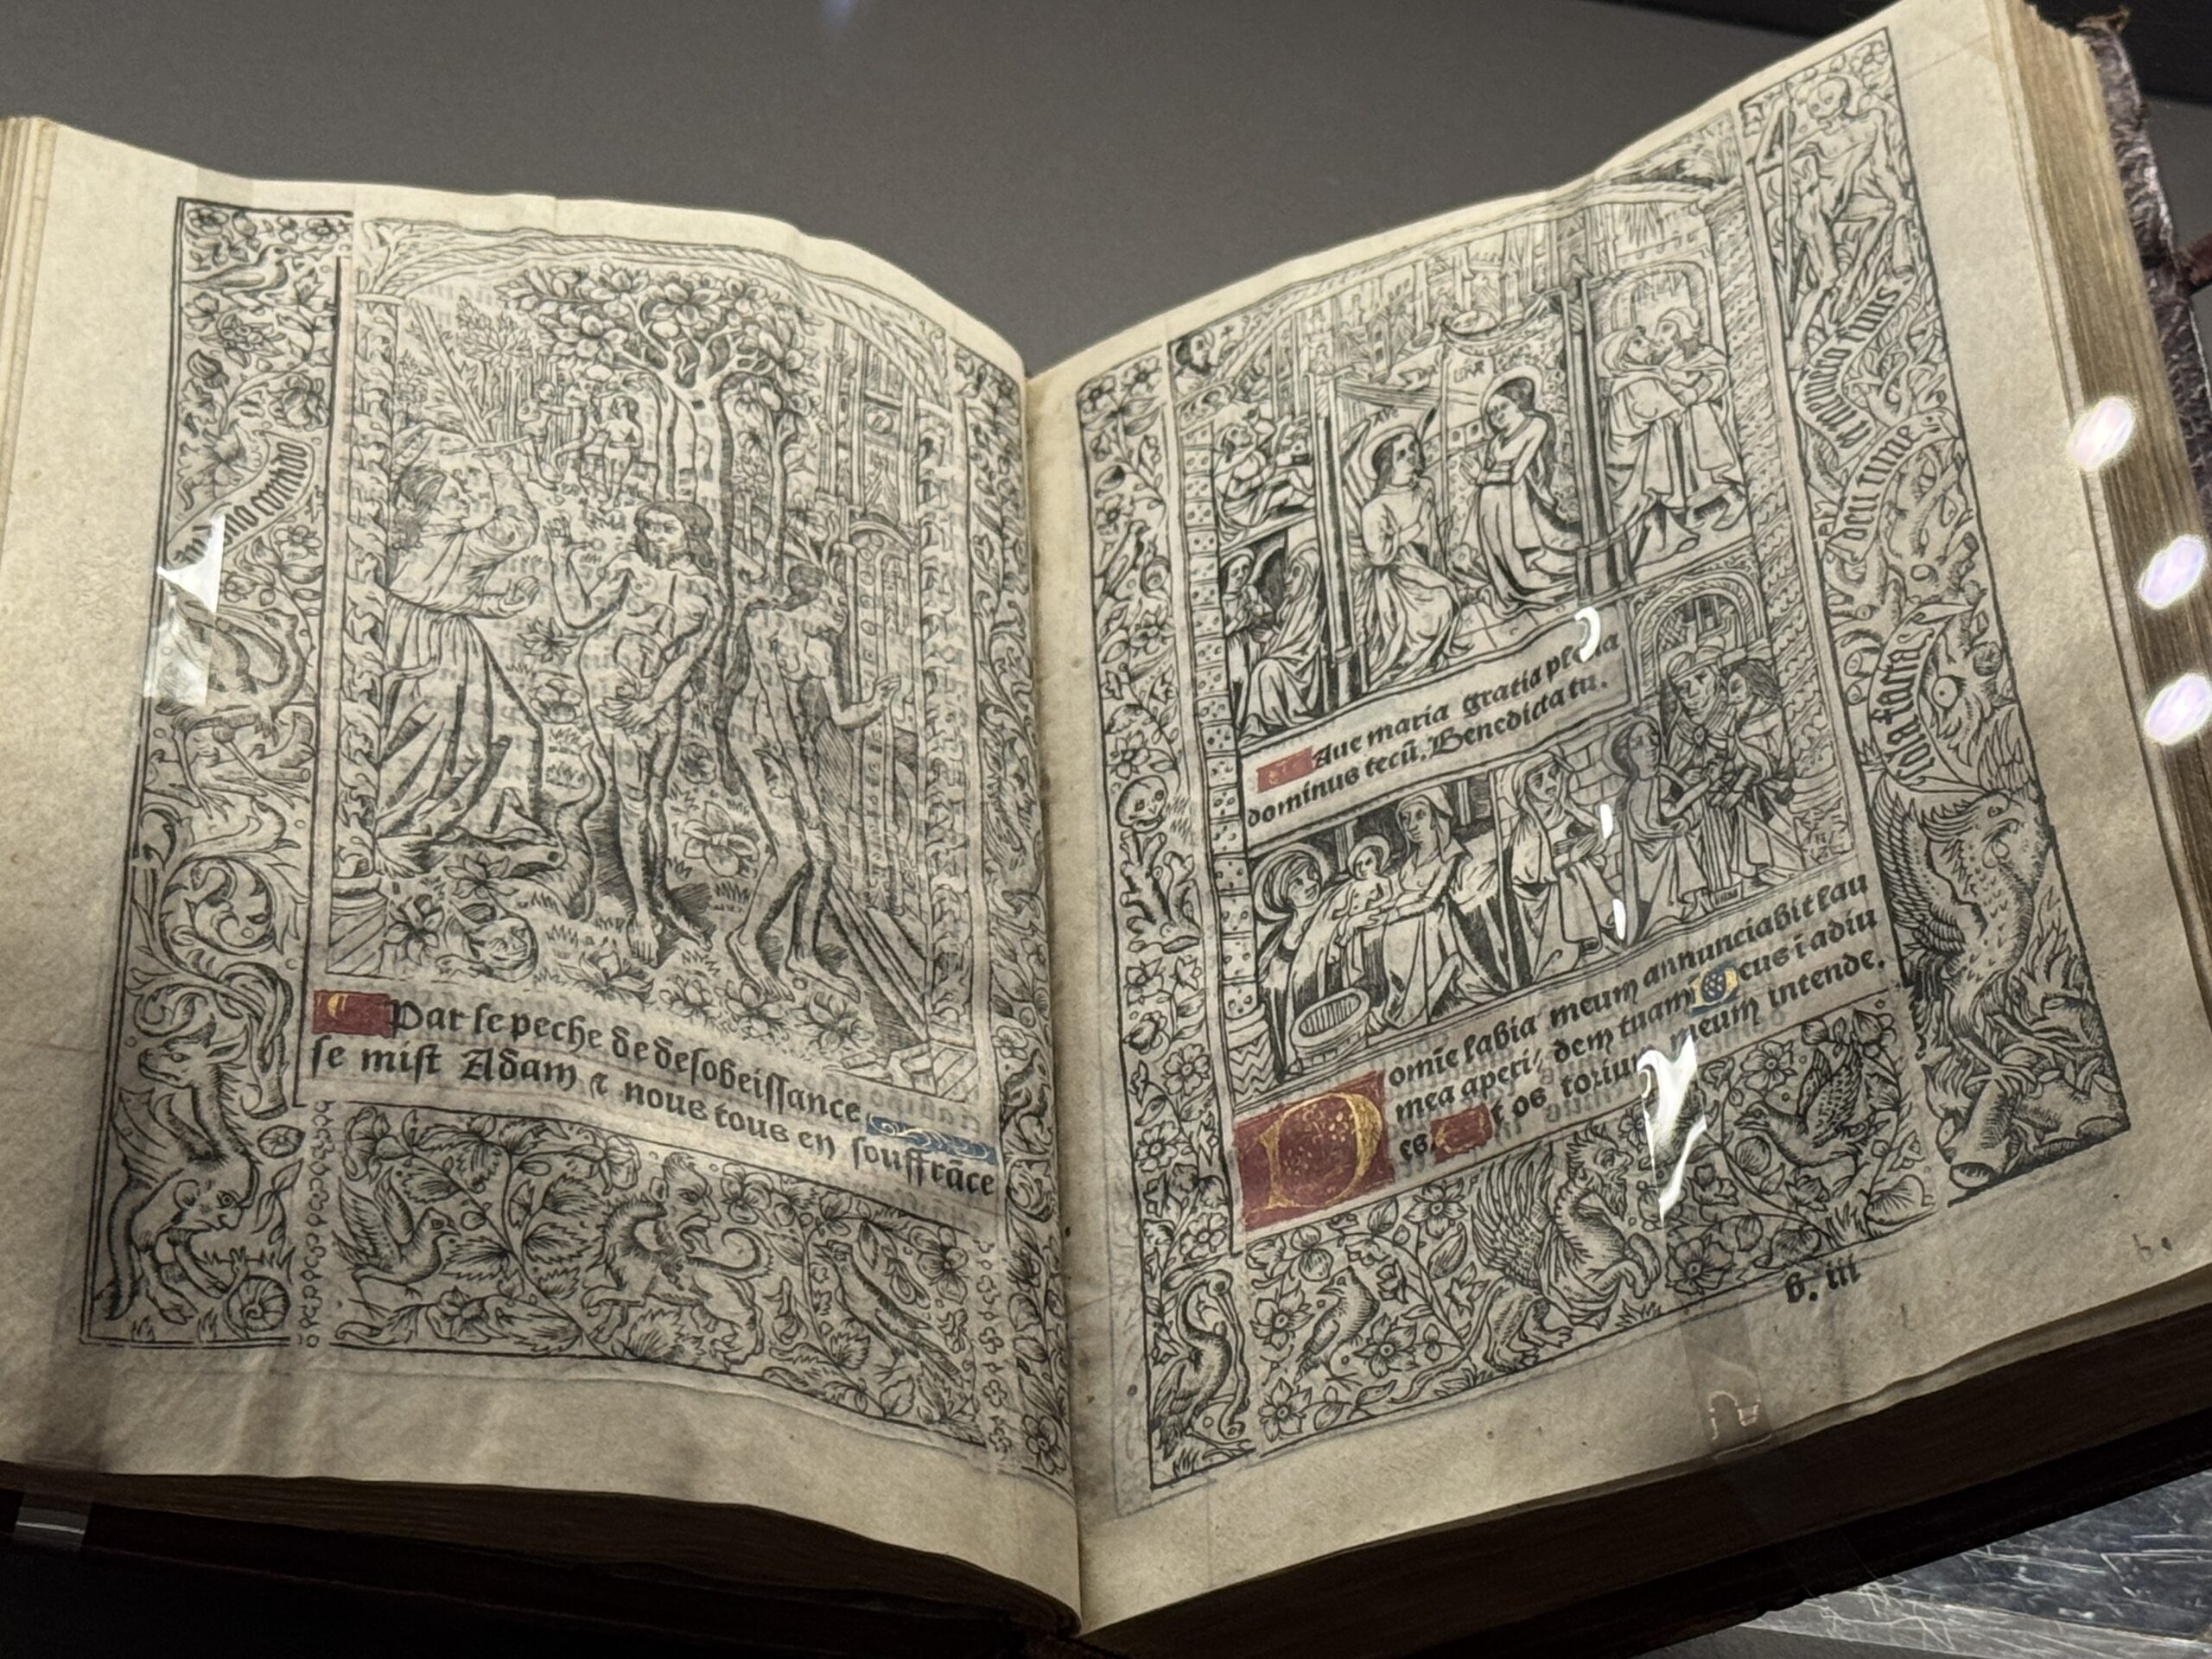 confido
Par le peche de desobeissance
se mist Adam ⁊ nous tous en souffrāce
mandata
time
Aue maria gratia plena
dominus tecū. Benedicta tu.
Domīe labia meum annunciabit lau
mea aperi/ dem tuam Deus i adiu
es Et os torium meum intende.
b. iii